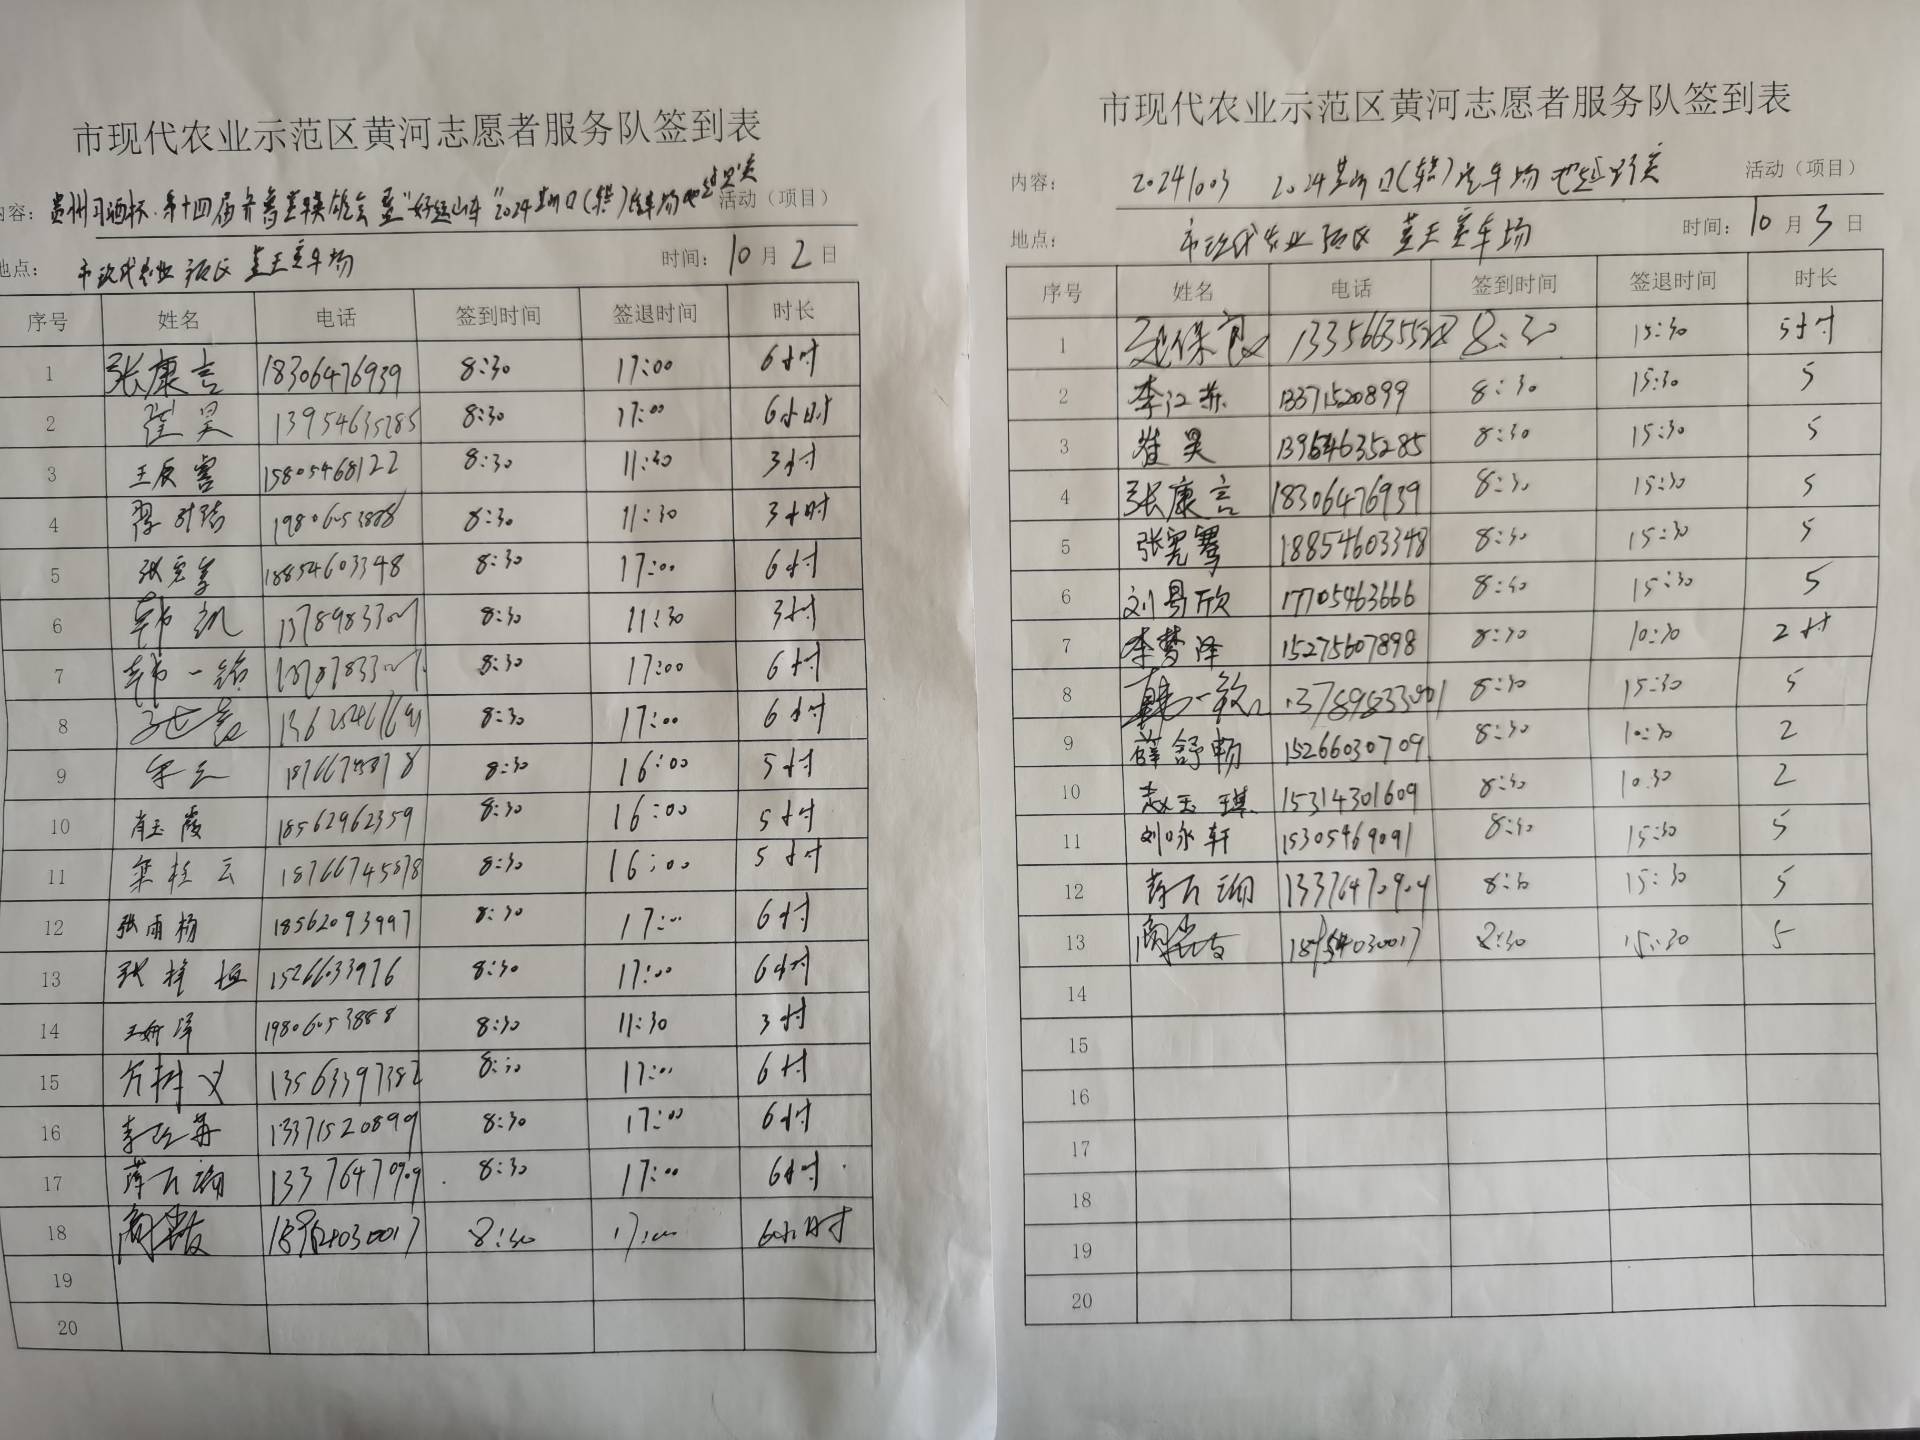 市现代农业示范区黄河志愿者服务队签到表
内容： 贵州习酒杯·第十四届齐鲁 英雄会暨“好运山东”2024 (韩)汽车场地 活动（项目）
地点： 市现代农业示范区 赛车场 时间： 10 月 2 日
序号 姓名 电话 签到时间 签退时间 时长
1 张康言 18306476939 8:30 17:00 6小时
2 崔昊 13954635285 8:30 17:00 6小时
3 王辰 15805468122 8:30 11:30 3小时
4 19806053888 8:30 11:30 3小时
5 张 18854603348 8:30 17:00 6小时
6 韩凯 8:30 11:30 3小时
7 韩一 8:30 17:00 6小时
8 8:30 17:00 6小时
9 8:30 16:00 5小时
10 肖玉霞 18562962359 8:30 16:00 5小时
11 桂云 18766745878 8:30 16:00 5小时
12 张雨杨 18562093997 8:30 17:00 6小时
13 张 恒 1526633976 8:30 17:00 6小时
14 王妍泽 19806053888 8:30 11:30 3小时
15 树义 13563397382 8:30 17:00 6小时
16 李江苏 13371520899 8:30 17:00 6小时
17 薛 13376470909 8:30 17:00 6小时
18 8:30 17:00 6小时
19
20
市现代农业示范区黄河志愿者服务队签到表
内容： 20241003 2024 (韩)汽车场地 活动（项目）
地点： 市现代农业示范区 赛车场 时间： 10 月 3 日
序号 姓名 电话 签到时间 签退时间 时长
1 8:30 15:30 5小时
2 李江苏 13371520899 8:30 15:30 5
3 崔昊 13954635285 8:30 15:30 5
4 张康言 18306476939 8:30 15:30 5
5 张 18854603348 8:30 15:30 5
6 刘昜欣 17705463666 8:30 15:30 5
7 李梦泽 15275607898 8:30 10:30 2小时
8 韩一 13789833001 8:30 15:30 5
9 薛舒畅 15266030709 8:30 10:30 2
10 赵玉琪 15314301609 8:30 10:30 2
11 刘咏轩 15305469091 8:30 15:30 5
12 薛 13376470909 8:30 15:30 5
13 18954030017 8:30 15:30 5
14
15
16
17
18
19
20